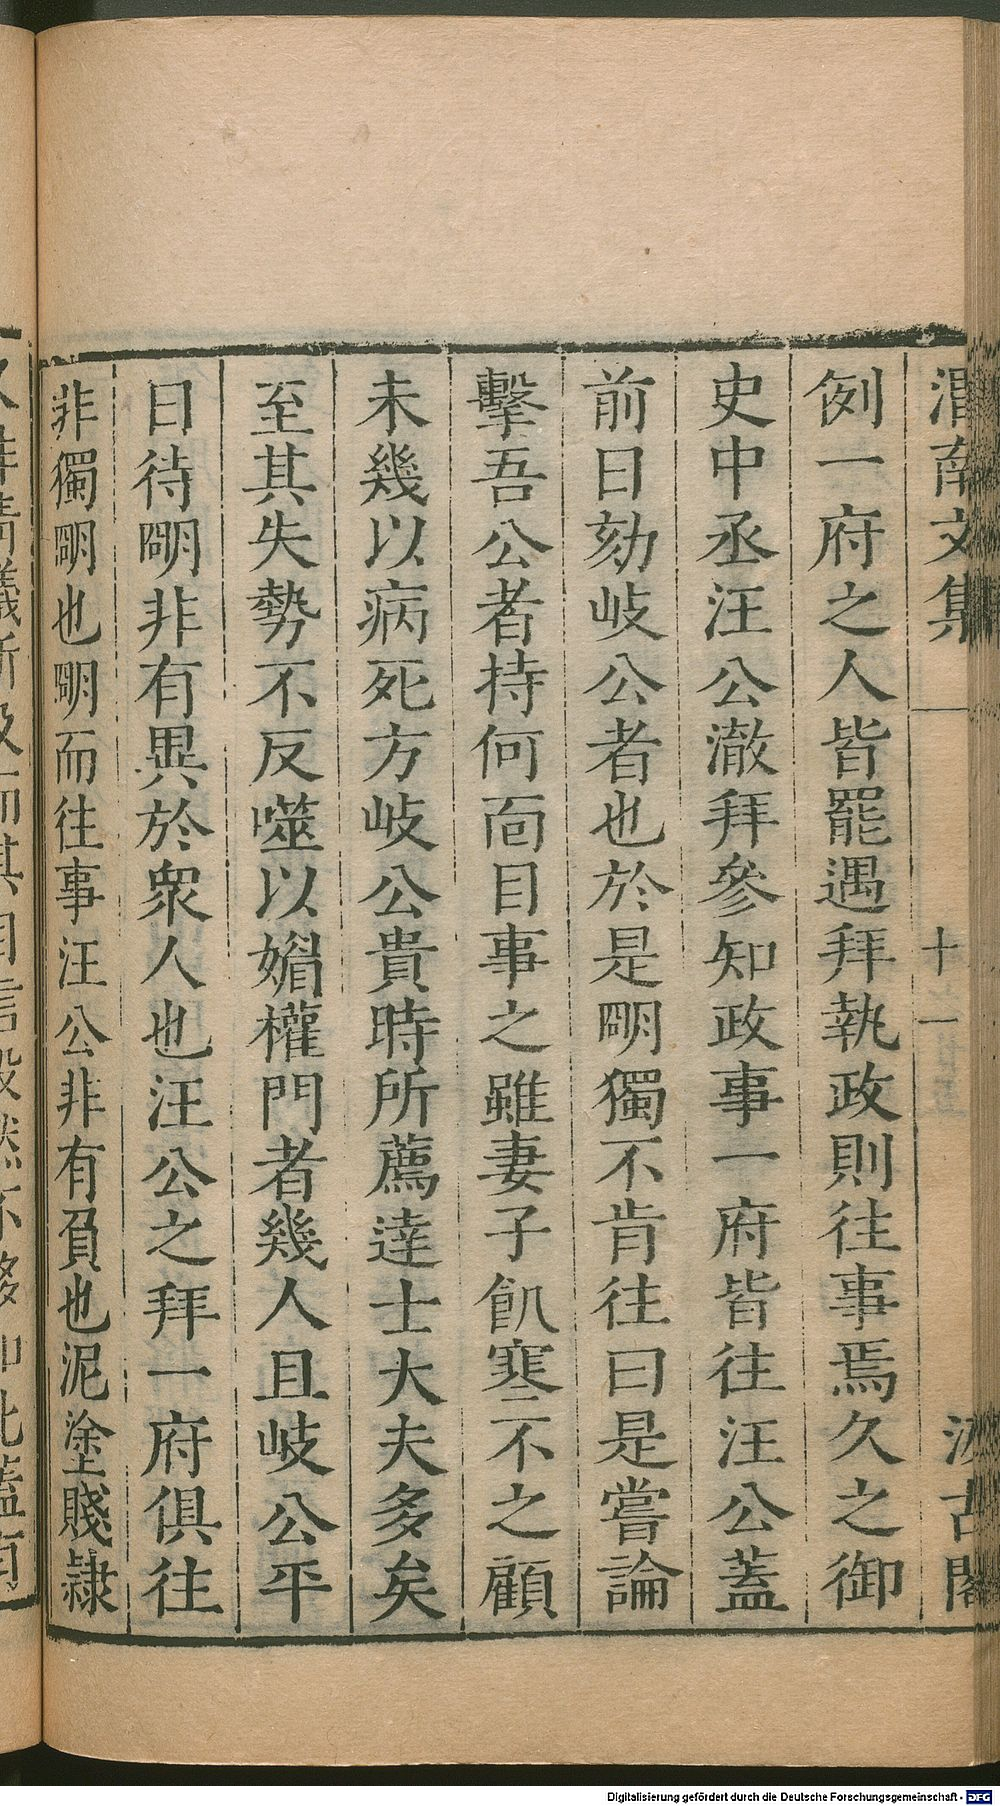 渭南文集 十一 汲古閣
例一府之人皆罷遇拜執政則往事焉久之御
史中丞汪公澈拜參知政事一府皆往汪公蓋
前日劾岐公者也於是明獨不肯往曰是嘗論
擊吾公者持何面目事之雖妻子飢寒不之顧
未幾以病死方岐公貴時所薦達士大夫多矣
至其失勢不反噬以媚權門者幾人且岐公平
日待明非有異於衆人也汪公之拜一府俱往
非獨明也明而往事汪公非有負也泥塗賤隸
Digitalisierung gefördert durch die Deutsche Forschungsgemeinschaft - DFG